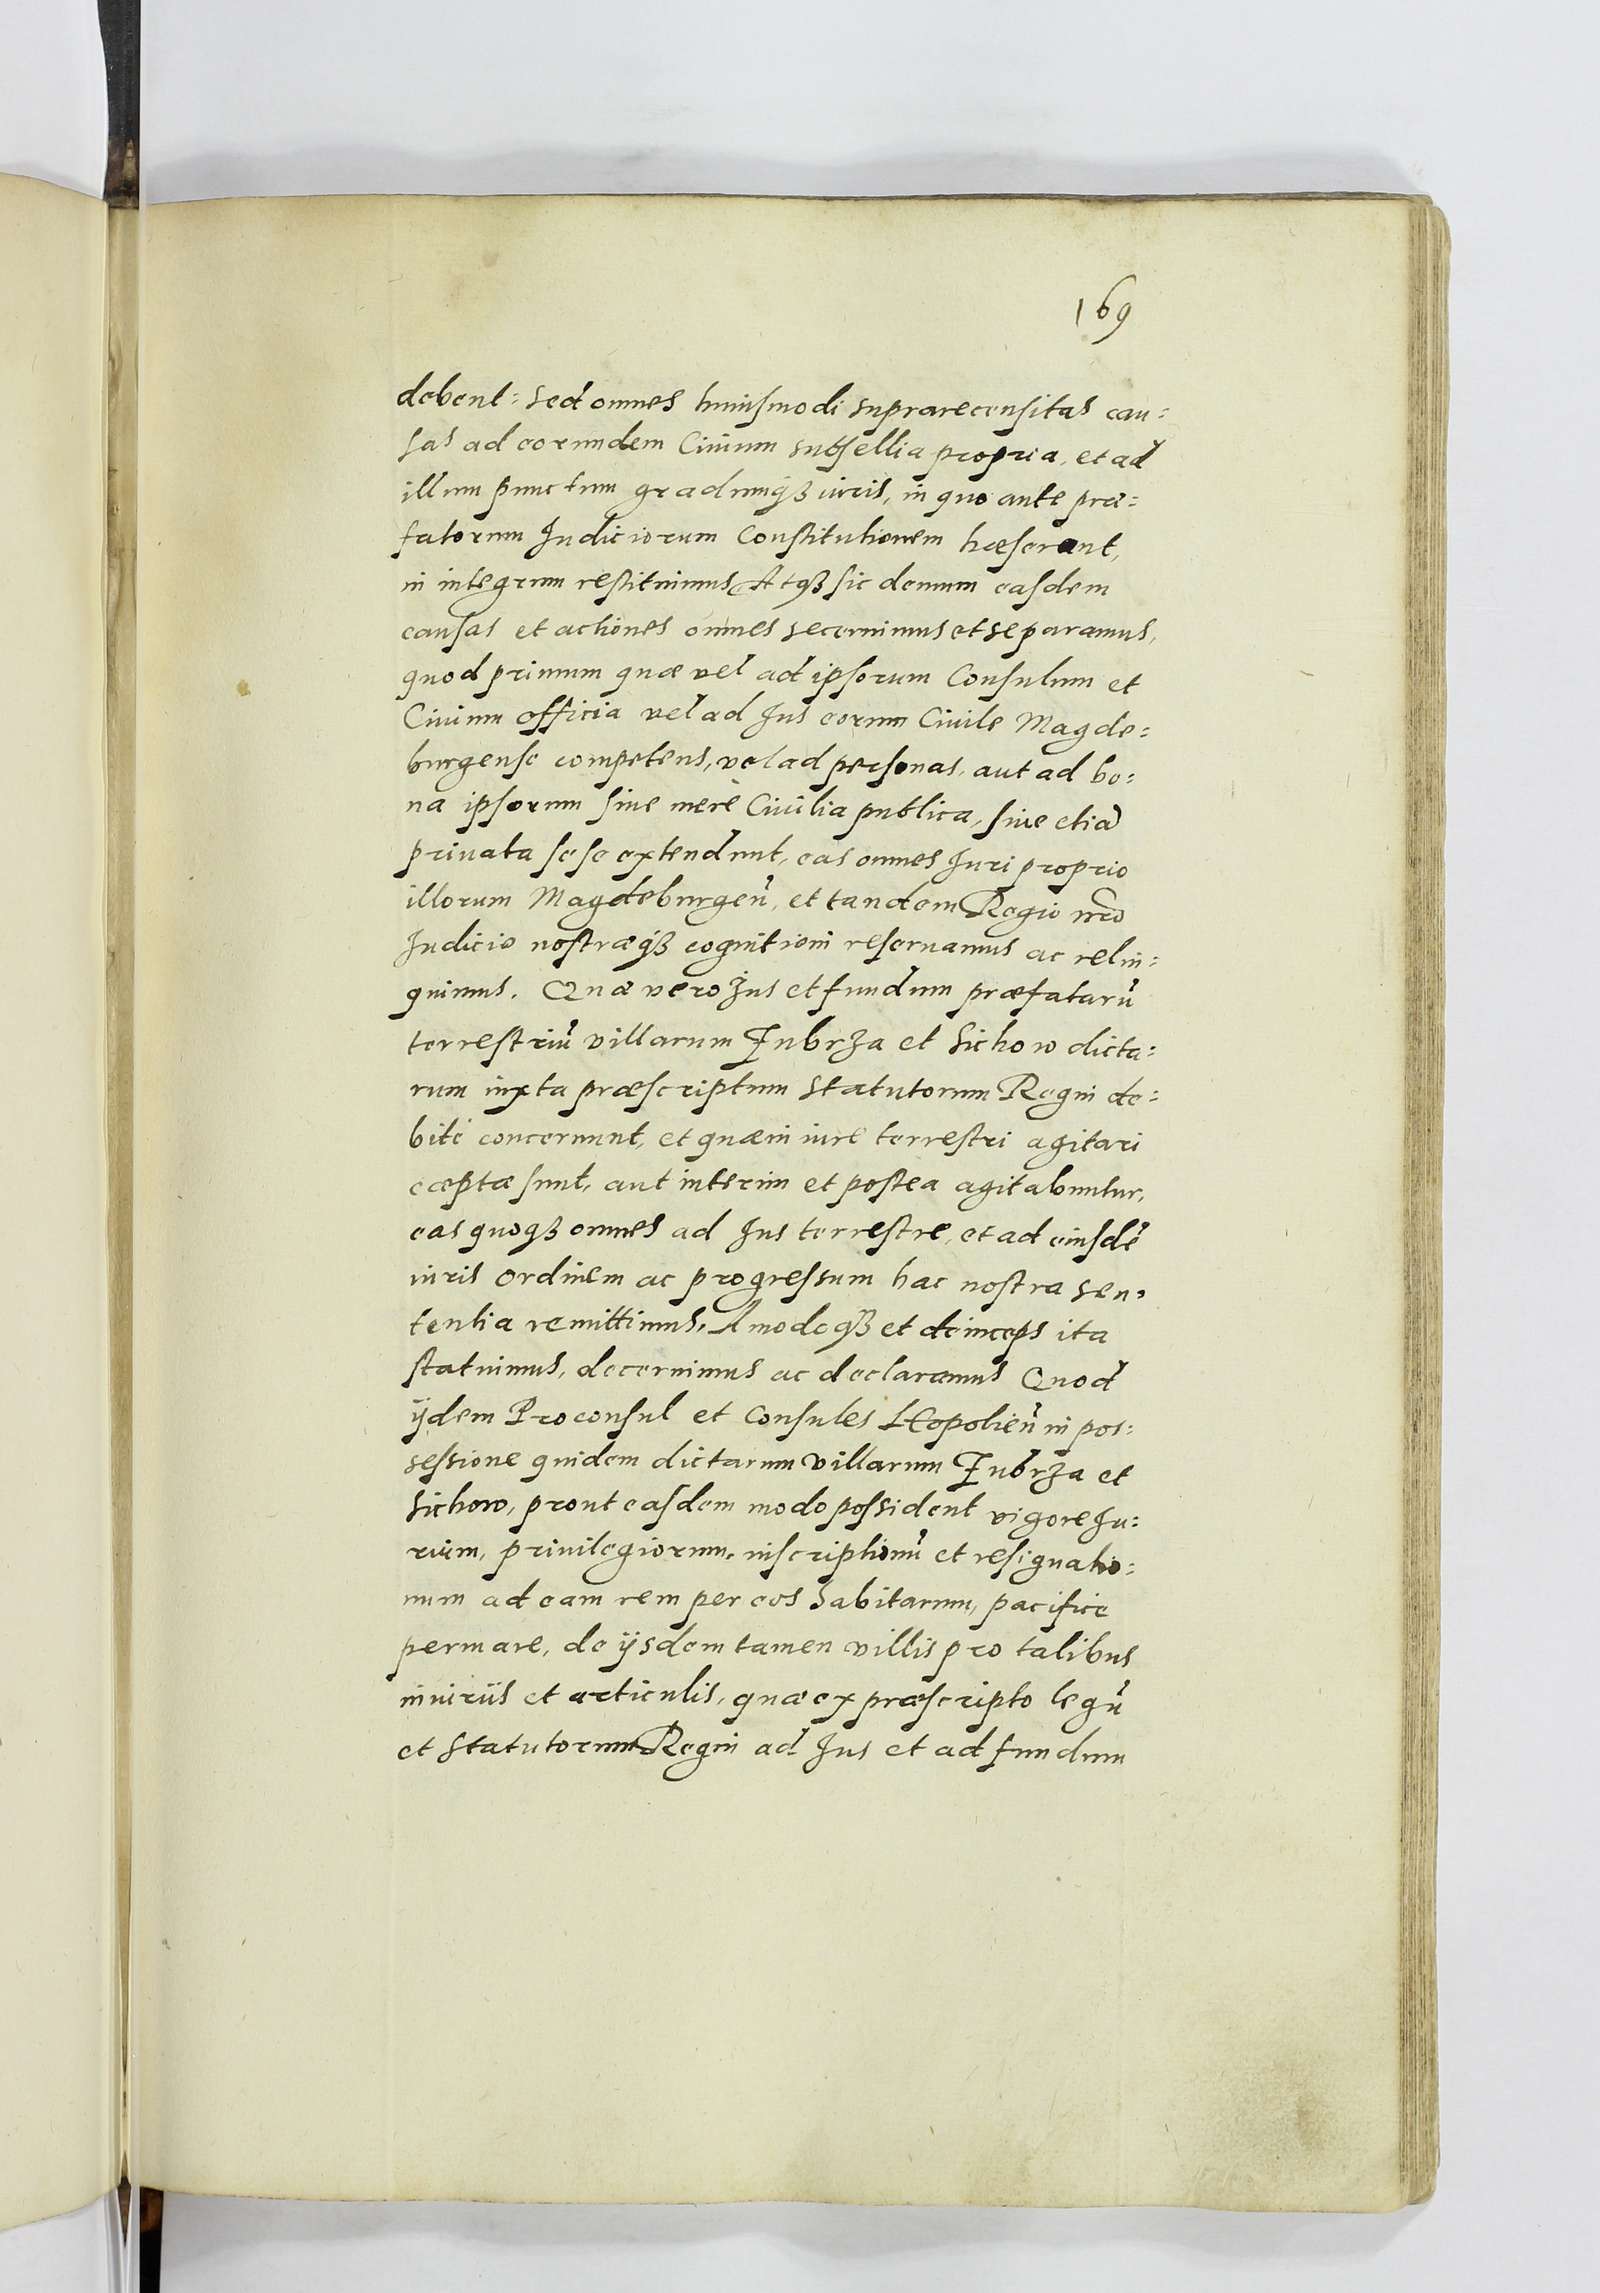 169
debent: sed omnes huiusmodi suprarecensitas cau:
sas ad eorundem Ciuium subsellia propria, et ad
illum punctum gradumq3 iuris, in quo ante præ:
fatorum Iudiciorum Constitutionem hæserant,
in integrum restituimus, Atq3 sic demum easdem
causas et actiones omnes secernimus et separamus,
quod primum quæ vel ad ipsorum Consulum et
Ciuium officia vel ad Jus eorum Ciuile Magde:
burgense competens, vel ad personas, aut ad bo:
na ipsorum siue merè Ciuilia publica, siue etiã
priuata sese extendunt, eas omnes Juri proprio
illorum Magdeburgeñ, et tandem Regio nr̃o
Iudicio nostræq3 cognitioni reseruamus ac relin:
quimus. Quæ vero Jus et fundum præfatarũ
terrestriũ villarum Zubrza et Sichow dicta:
rum iuxta præscriptum Statutorum Regni de:
bitè concernunt, et quæ in iure terrestri agitari
cæptæ sunt, aut interim et postea agitabuntur,
eas quoq3 omnes ad Jus terrestre, et ad eiusdẽ
iuris ordinem ac progressum hac nostra sen:
tentia remittimus, Amodoq3 et deinceps ita
statuimus, decernimus ac declaramus Quod
ijdem Proconsul et Consules Leopolieñ in pos:
sessione quidem dictarum villarum Zubrza et
Sichow, prout easdem modo possident vigore Ju:
rium, priuilegiorum, inscriptionũ et resignatio:
num ad eam rem per eos habitarum, pacifice
permane, de ijsdem tamen villis pro talibus
iniuriis et articulis, quæ ex præscripto legũ
et Statutorum Regni ad Jus et ad fundum